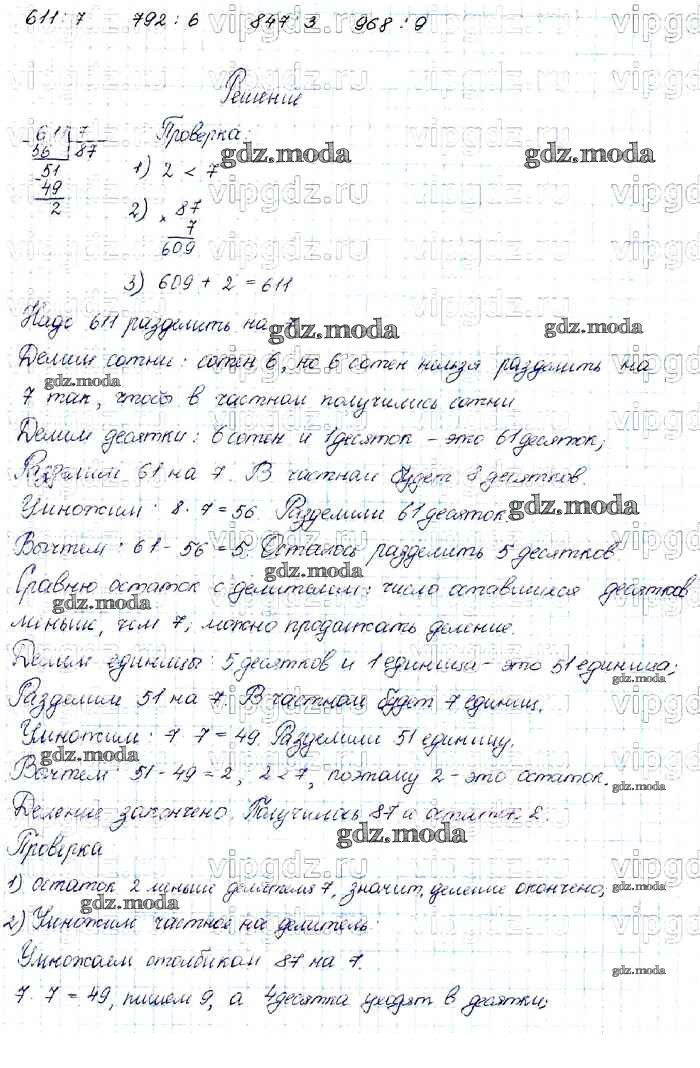 611 : 7 792 : 6 847 : 3 968 : 9
Решение
611 7 Проверка:
56 87
51 1) 2 < 7
49
2 2) × 87
7
609
3) 609 + 2 = 611
Надо 611 разделить на 7.
Делим сотни: сотен 6, но 6 сотен нельзя разделить на
7 так, чтобы в частном получились сотни
Делим десятки: 6 сотен и 1 десяток – это 61 десяток;
Разделим 61 на 7. В частном будет 8 десятков.
Умножим: 8 · 7 = 56. Разделили 61 десяток
Вычтем: 61 - 56 = 5. Осталось разделить 5 десятков
Сравню остаток с делителем: число оставшихся десятков
меньше, чем 7, можно продолжать деление.
Делим единицы: 5 десятков и 1 единица – это 51 единица;
Разделим 51 на 7. В частном будет 7 единиц.
Умножим: 7 · 7 = 49. Разделили 51 единицу.
Вычтем: 51 - 49 = 2, 2 < 7, поэтому 2 – это остаток.
Деление закончено. Получилось 87 и остаток 2.
Проверка
1) остаток 2 меньше делителя 7, значит, деление окончено;
2) Умножим частное на делитель.
Умножаем столбиком 87 на 7.
7 · 7 = 49, пишем 9, а 4 десятка уходят в десятки;
vipgdz.ru
gdz.moda